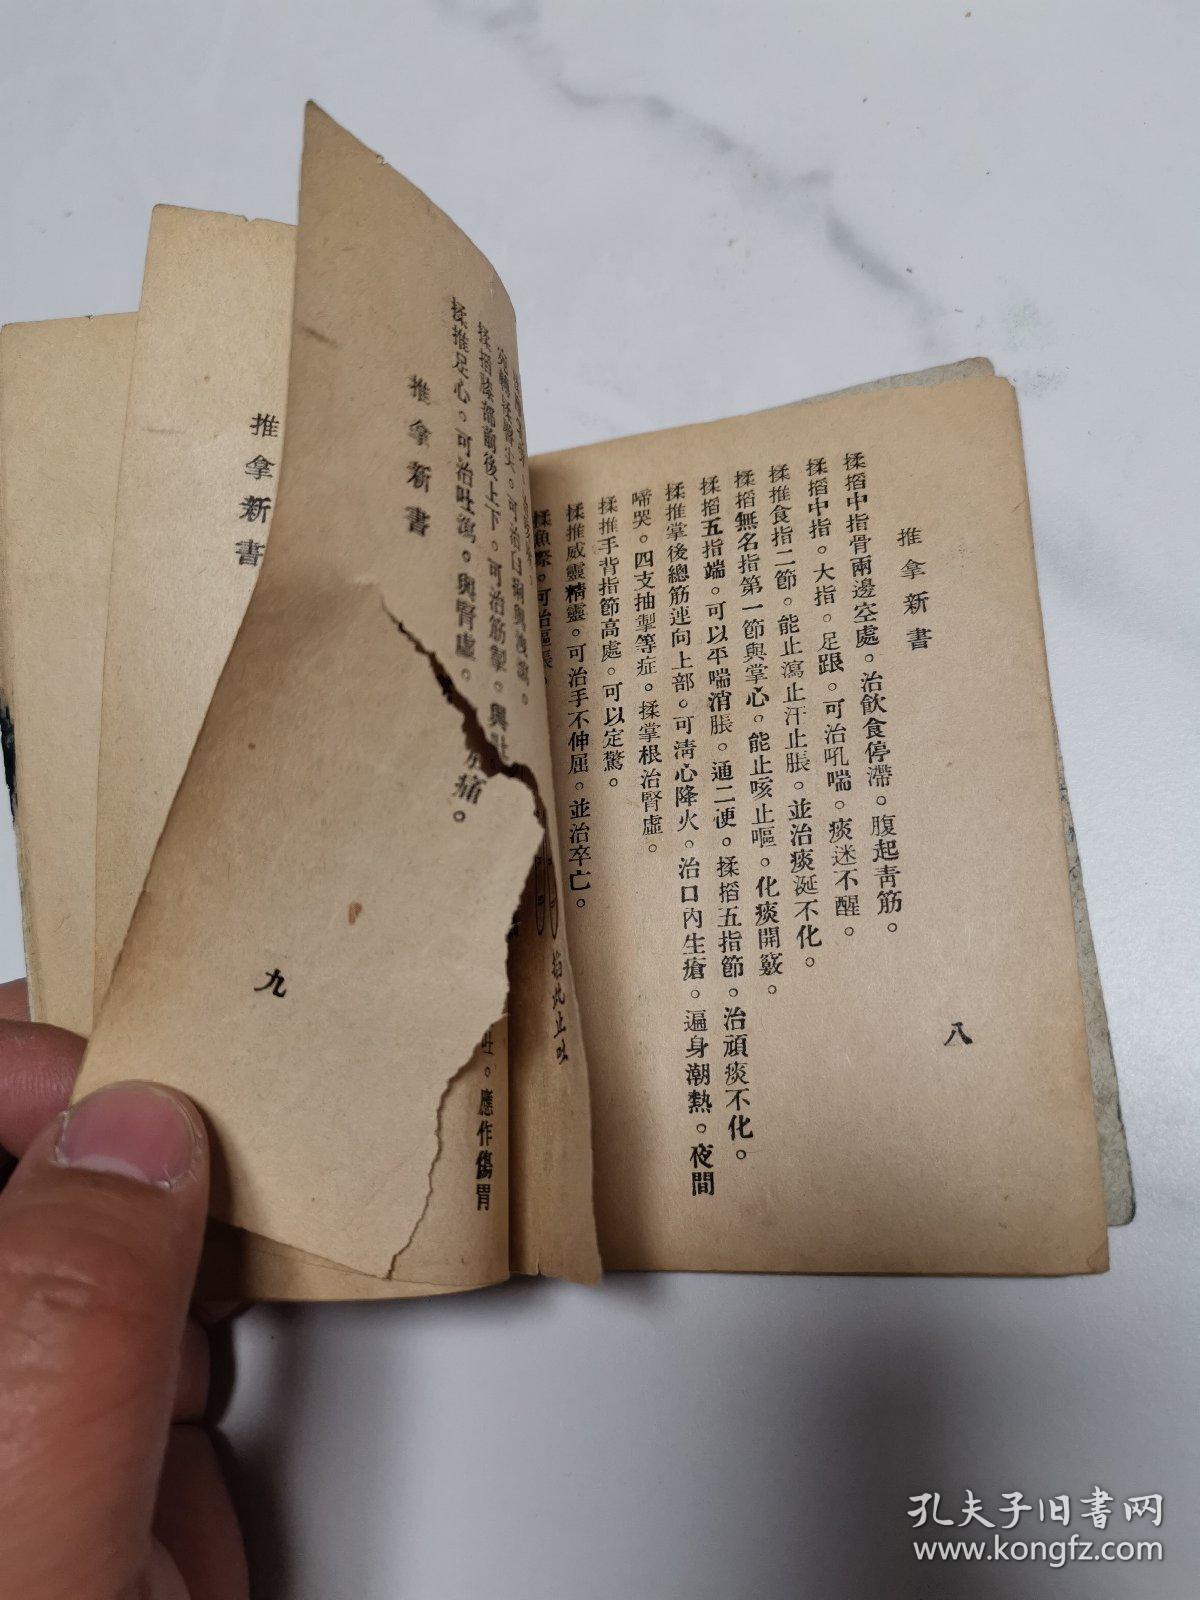 推拿新書
八
揉搯中指骨兩邊空處。治飲食停滯。腹起靑筋。
揉搯中指。大指。足跟。可治吼喘。痰迷不醒。
揉推食指二節。能止瀉止汗止脹。並治痰涎不化。
揉搯無名指第一節與掌心。能止咳止嘔。化痰開竅。
揉搯五指端。可以平喘消脹。通二便。揉搯五指節。治頑痰不化。
揉推掌後總筋連向上部。可淸心降火。治口內生瘡。遍身潮熱。夜間
啼哭。四支抽掣等症。揉掌根治腎虛。
揉推手背指節高處。可以定驚。
揉推威靈精靈。可治手不伸屈。並治卒亡。
揉魚際。可治嘔
搯此止吐
揉搯膝部前後上下。可治筋掣。與吐
揉推足心。可治吐瀉。與腎虛。
痛。
推拿新書
九
吐。應作傷胃
推拿新書
孔夫子旧書网
www.kongfz.com